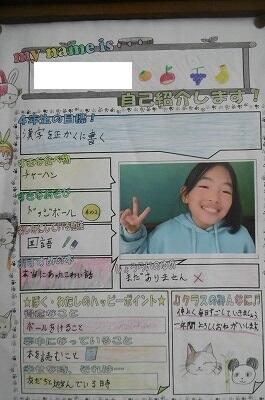 my name is
自己紹介します!
4年生の目標!
漢字を正かくに書く
チャーハン
ドッジボール
国語
本当にあったこわい話
まだありません
☆ぼく・わたしのハッピーポイント☆
得意なこと
ボールをけること
夢中になっていること
本を読むこと
幸せな時、それは…
友だちと遊んでいる時
♫クラスのみんなに♫
仲よく毎日すごしていきましょう
一年間よろしくおねがいします